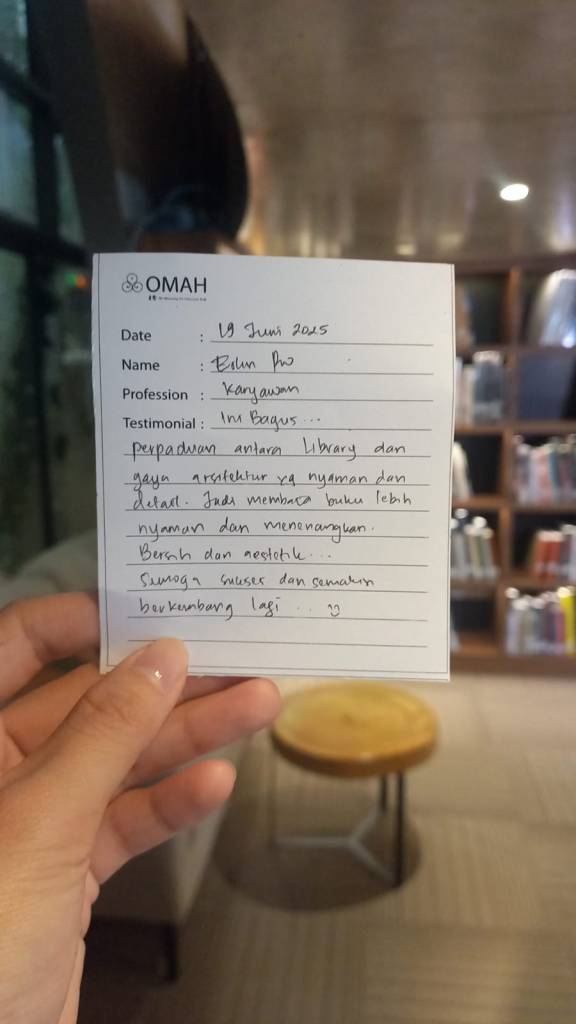 OMAH
Date : 19 Juni 2025
Name :
Profession : Karyawan
Testimonial : Ini Bagus...
perpaduan antara Library dan
gaya arsitektur yg nyaman dan
detail. Jadi membaca buku lebih
nyaman dan menenangkan.
Bersih dan aestetik...
Semoga sukses dan semakin
berkembang lagi ..